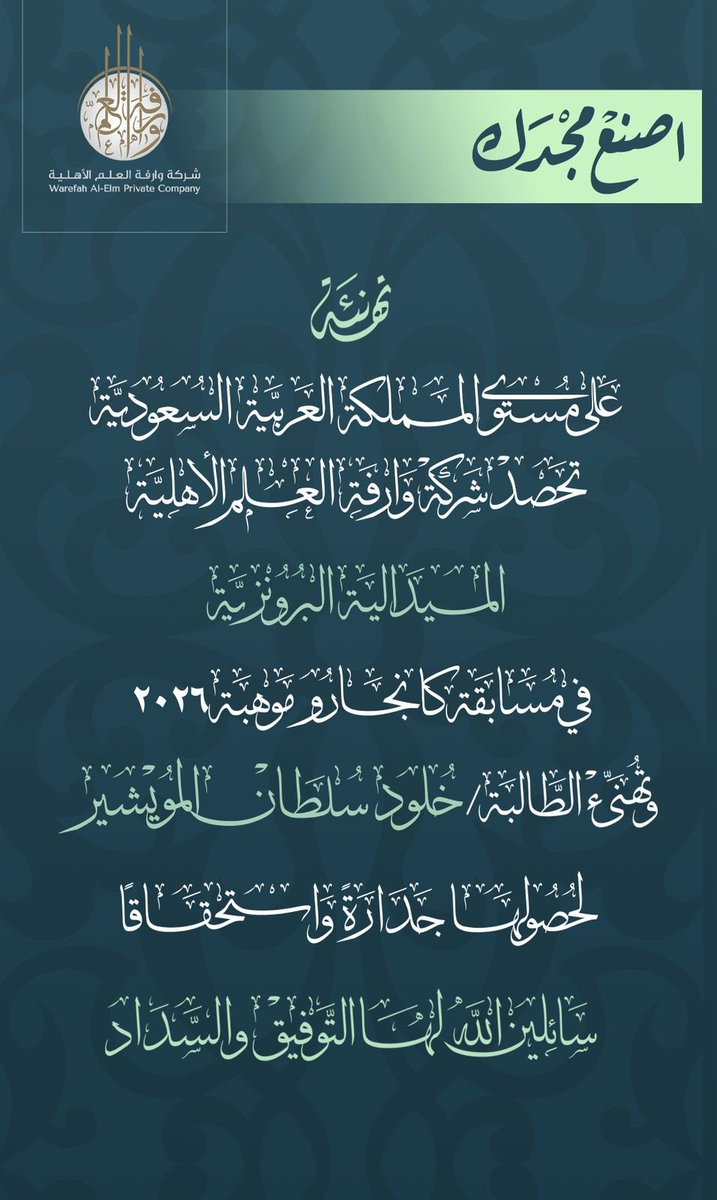 شركة وارفة العلم الأهلية
Warefah Al-Elm Private Company
اصنع مجدك
تهنئة
عَلى مُستوى المملكة العَربيَّة السُّعوديَّة
تحَصدْ شركَة وَارفَةِ العِلم الأهليَّة
الميدَالية البرُونزيَّة
في مُسَابقَة كانجَارو مَوهبَة ٢٠٢٦
وتُهنيءْ الطَّالبَة/ خُلود سُلطَان المُويشير
لحُصُولهَا جَدَارَةً وَاستحقَاقًا
سَائِلين اللهُ لهَا التَّوفيق والسَّدَاد